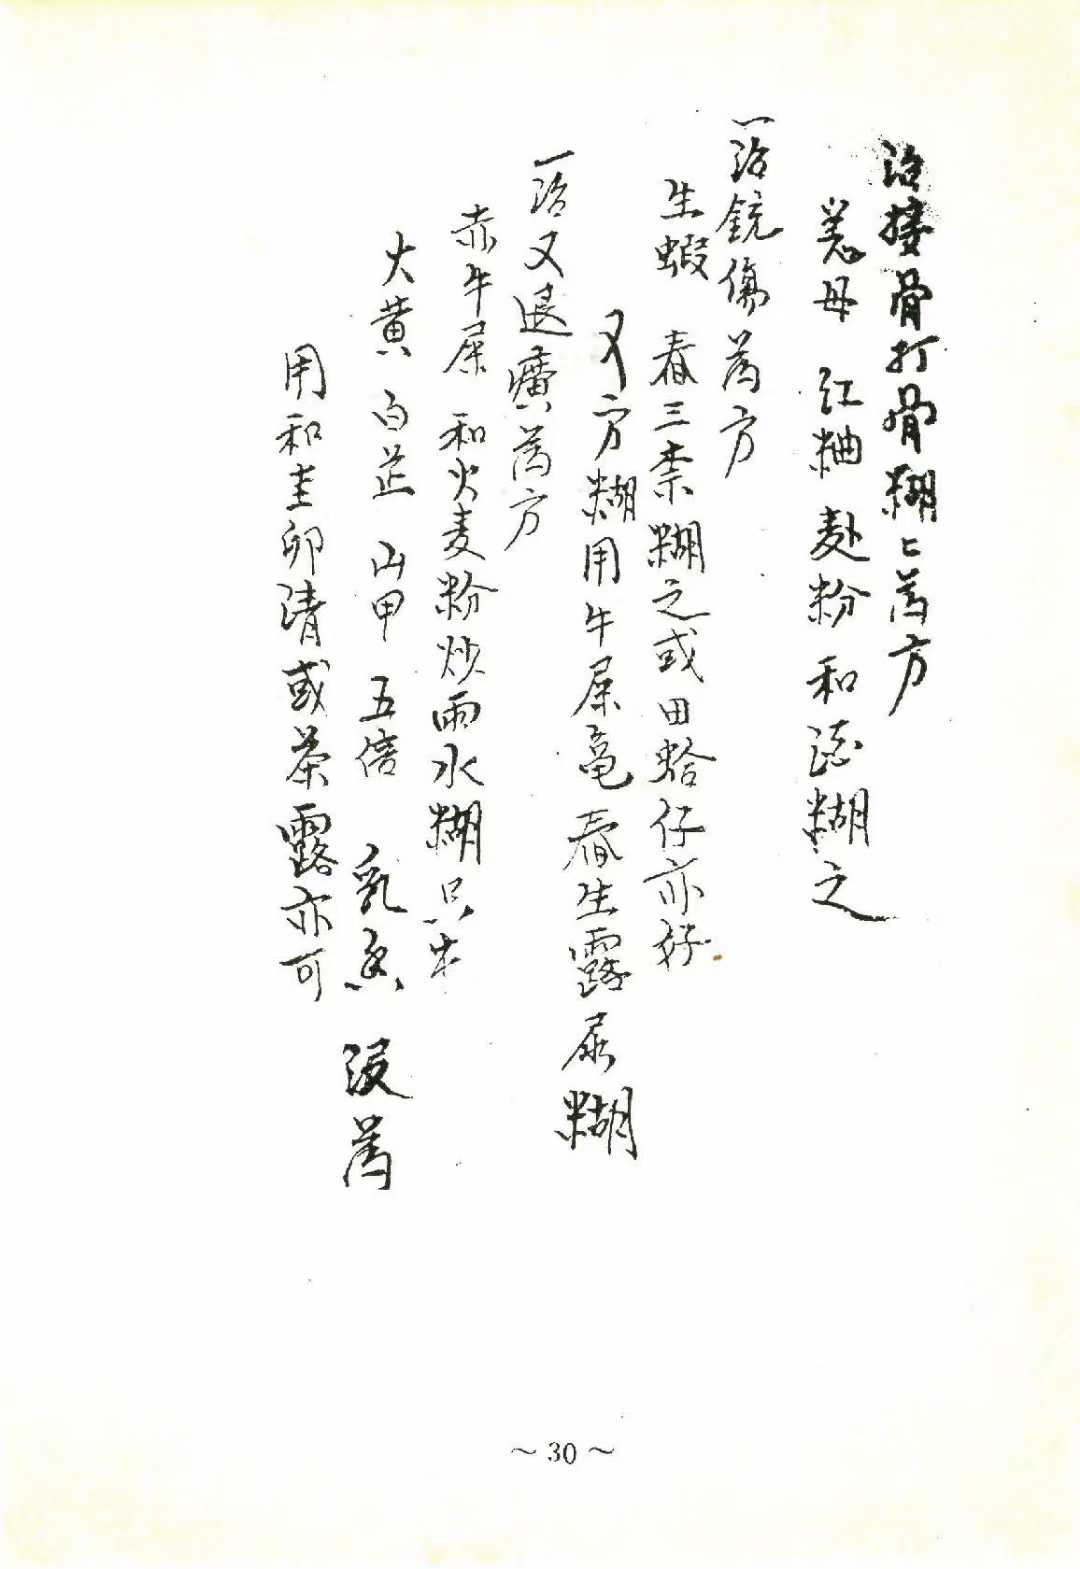 治接骨打骨糊〻為方
羗母 紅粬 麩粉 和酒糊之
一治銃傷為方
生蝦 舂三柰糊之或田蛤仔亦好
又方糊用牛屎黽舂生露屎糊
一治又退癀為方
赤牛屎 和火麦粉炒雨水糊只
大黄 白芷 山甲 五倍 乳香 没為
用和圭卵清或茶露亦可
～30～